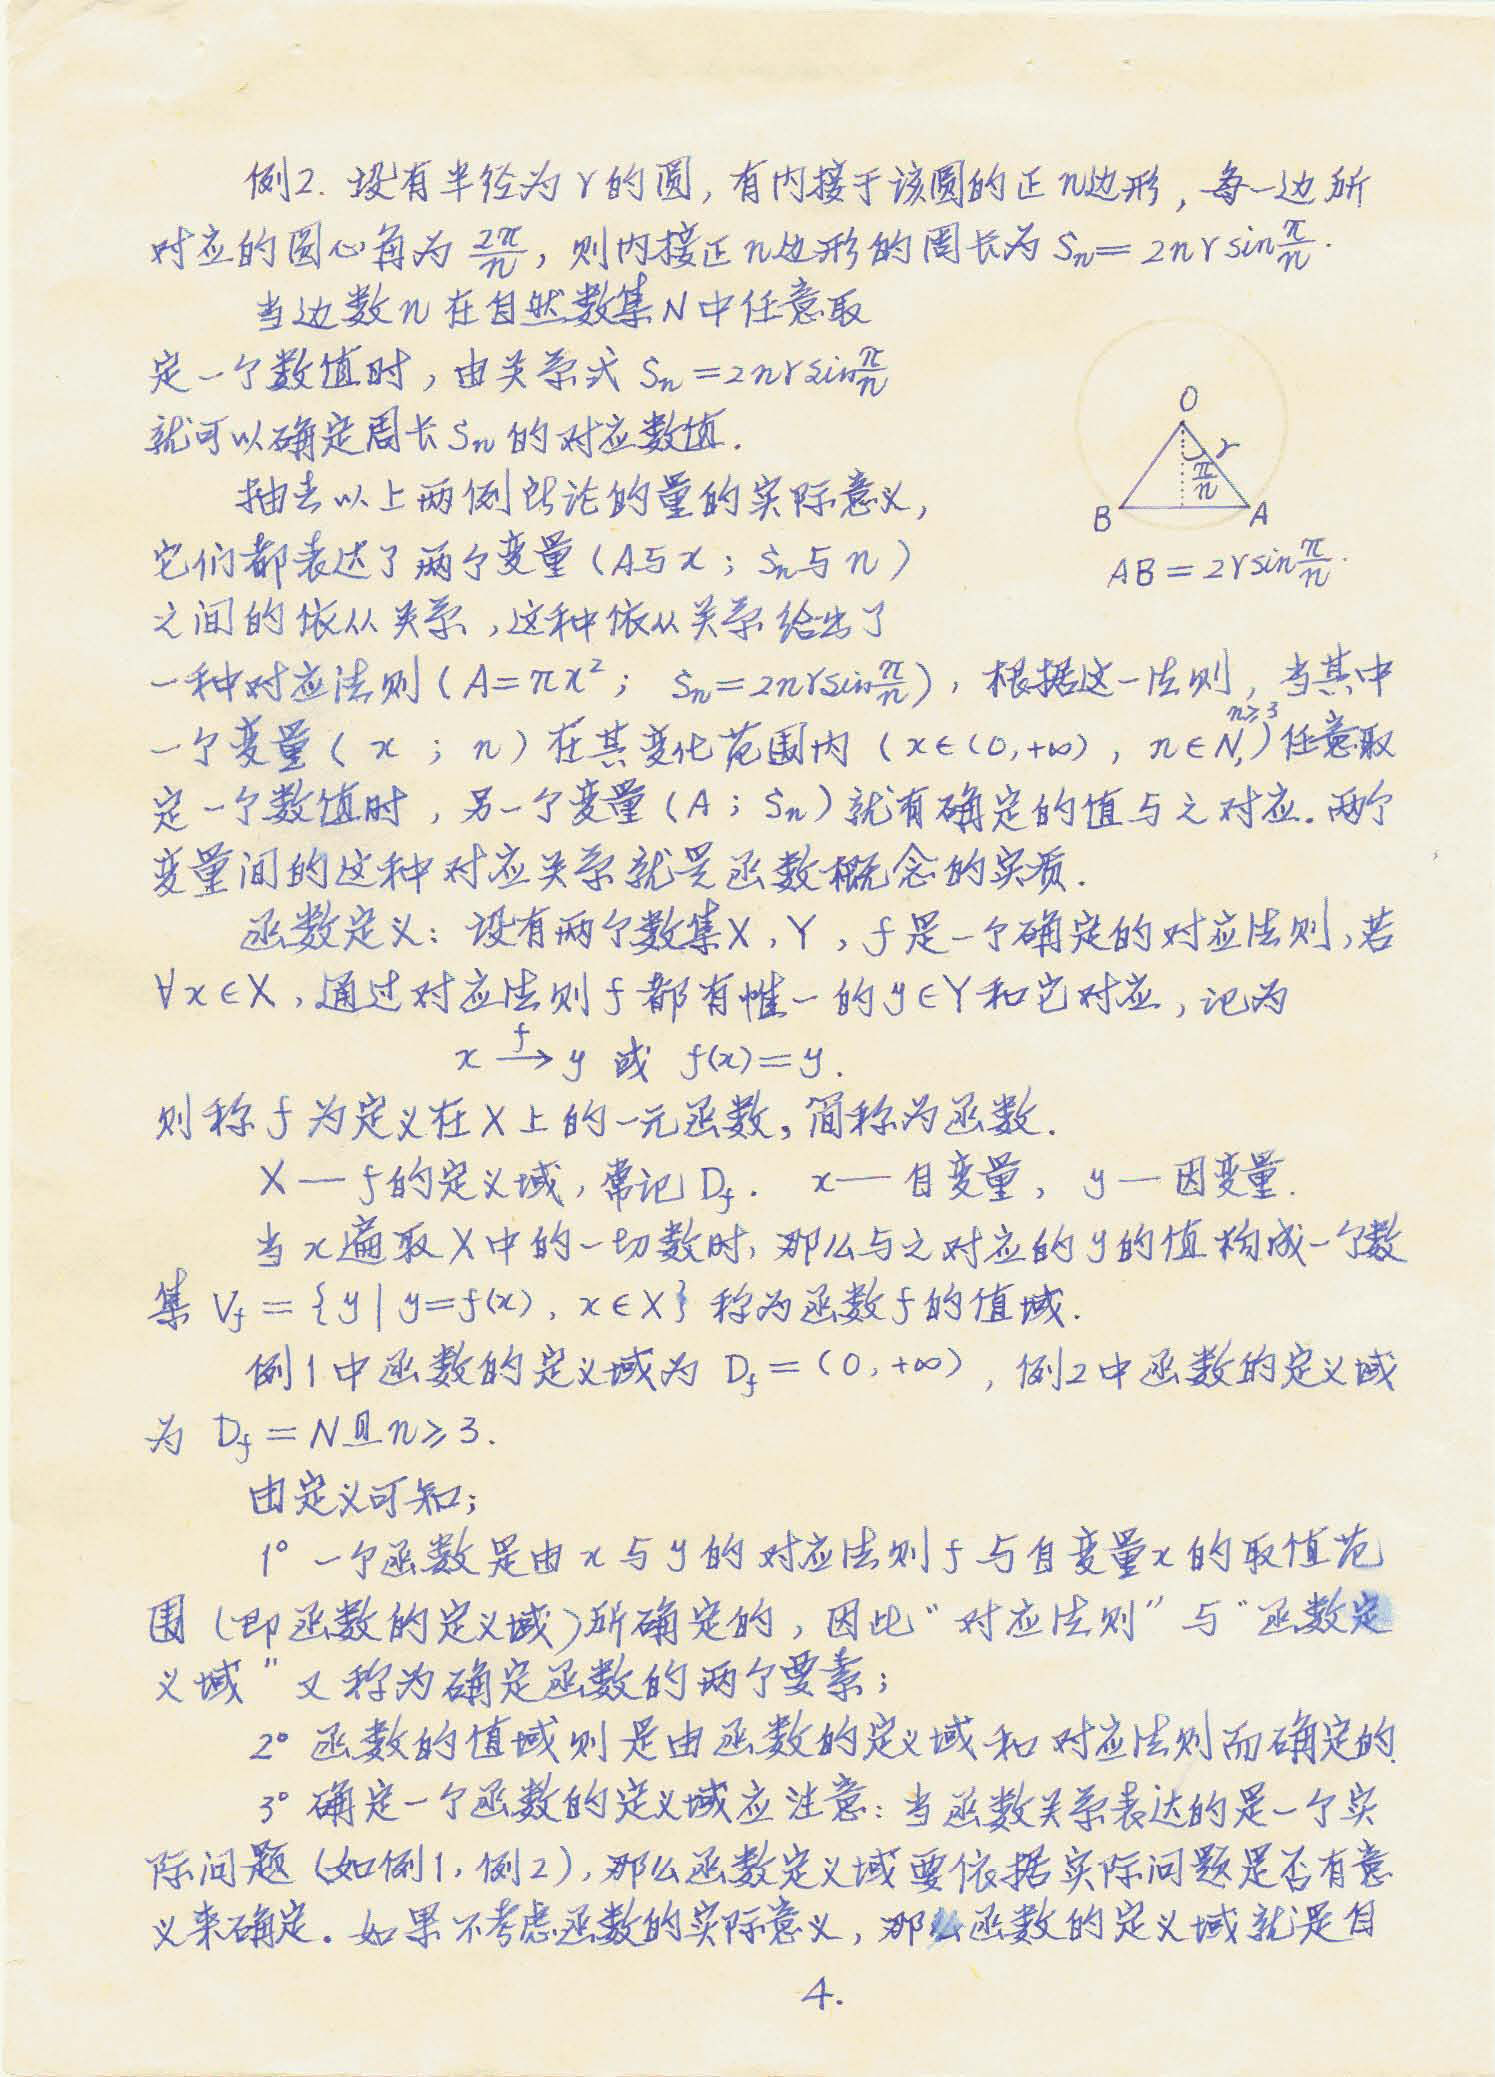 例2. 设有半径为r的圆, 有内接于该圆的正n边形, 每一边所
对应的圆心角为 2π/n, 则内接正n边形的周长为 Sn = 2nr sin π/n.
当边数n在自然数集N中任意取
定一个数值时, 由关系式 Sn = 2nr sin π/n
就可以确定周长Sn的对应数值.
O
r
π/n
B
A
AB = 2r sin π/n.
抽去以上两例所论的量的实际意义,
它们都表达了两个变量 (A与x ; Sn与n)
之间的依从关系, 这种依从关系给出了
一种对应法则 (A = πx² ; Sn = 2nr sin π/n), 根据这一法则, 当其中
一个变量 ( x ; n ) 在其变化范围内 ( x∈(0,+∞), n∈N, n≥3 ) 任意取
定一个数值时, 另一个变量 (A ; Sn) 就有确定的值与之对应. 两个
变量间的这种对应关系就是函数概念的实质.
函数定义: 设有两个数集X, Y, f是一个确定的对应法则, 若
∀x∈X, 通过对应法则f都有惟一的y∈Y和它对应, 记为
x —f→ y 或 f(x) = y.
则称f为定义在X上的一元函数, 简称为函数.
X — f的定义域, 常记 Df. x — 自变量, y — 因变量.
当x遍取X中的一切数时, 那么与之对应的y的值构成一个数
集 Vf = {y | y = f(x), x∈X} 称为函数f的值域.
例1中函数的定义域为 Df = (0, +∞), 例2中函数的定义域
为 Df = N且n≥3.
由定义可知;
1° 一个函数是由x与y的对应法则f与自变量x的取值范
围 (即函数的定义域) 所确定的, 因此“对应法则”与“函数定
义域”又称为确定函数的两个要素;
2° 函数的值域则是由函数的定义域和对应法则而确定的.
3° 确定一个函数的定义域应注意: 当函数关系表达的是一个实
际问题 (如例1, 例2), 那么函数定义域要依据实际问题是否有意
义来确定. 如果不考虑函数的实际意义, 那么函数的定义域就是自
4.